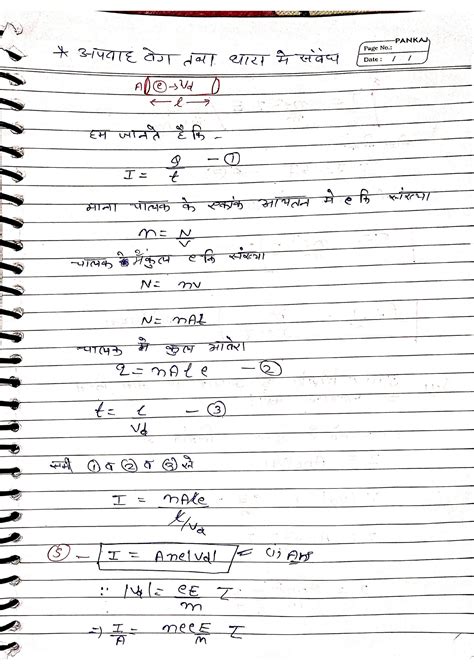 PANKAJ
Page No.:
Date: / /
* अपवाह वेग तथा धारा में संबंध
A e → Vd
← l →
हम जानते है कि -
I = Q/t — ①
माना चालक के एकांक आयतन मे e कि संख्या
n = N/V
चालक में कुल e कि संख्या
N = nV
N = nAl
चालक मे कुल आवेश
q = nAle — ②
t = l/Vd — ③
समी ① व ② व ③ से
I = nAle / l/Vd
⑤ — I = Ane|Vd| (i) Ans
∵ |Vd| = eE/m τ
⇒ I/A = neeE/m τ